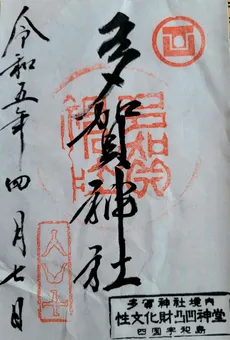 多賀神社
令和五年四月七日
多賀神社境内
性文化財凸凹神堂
四国宇和島